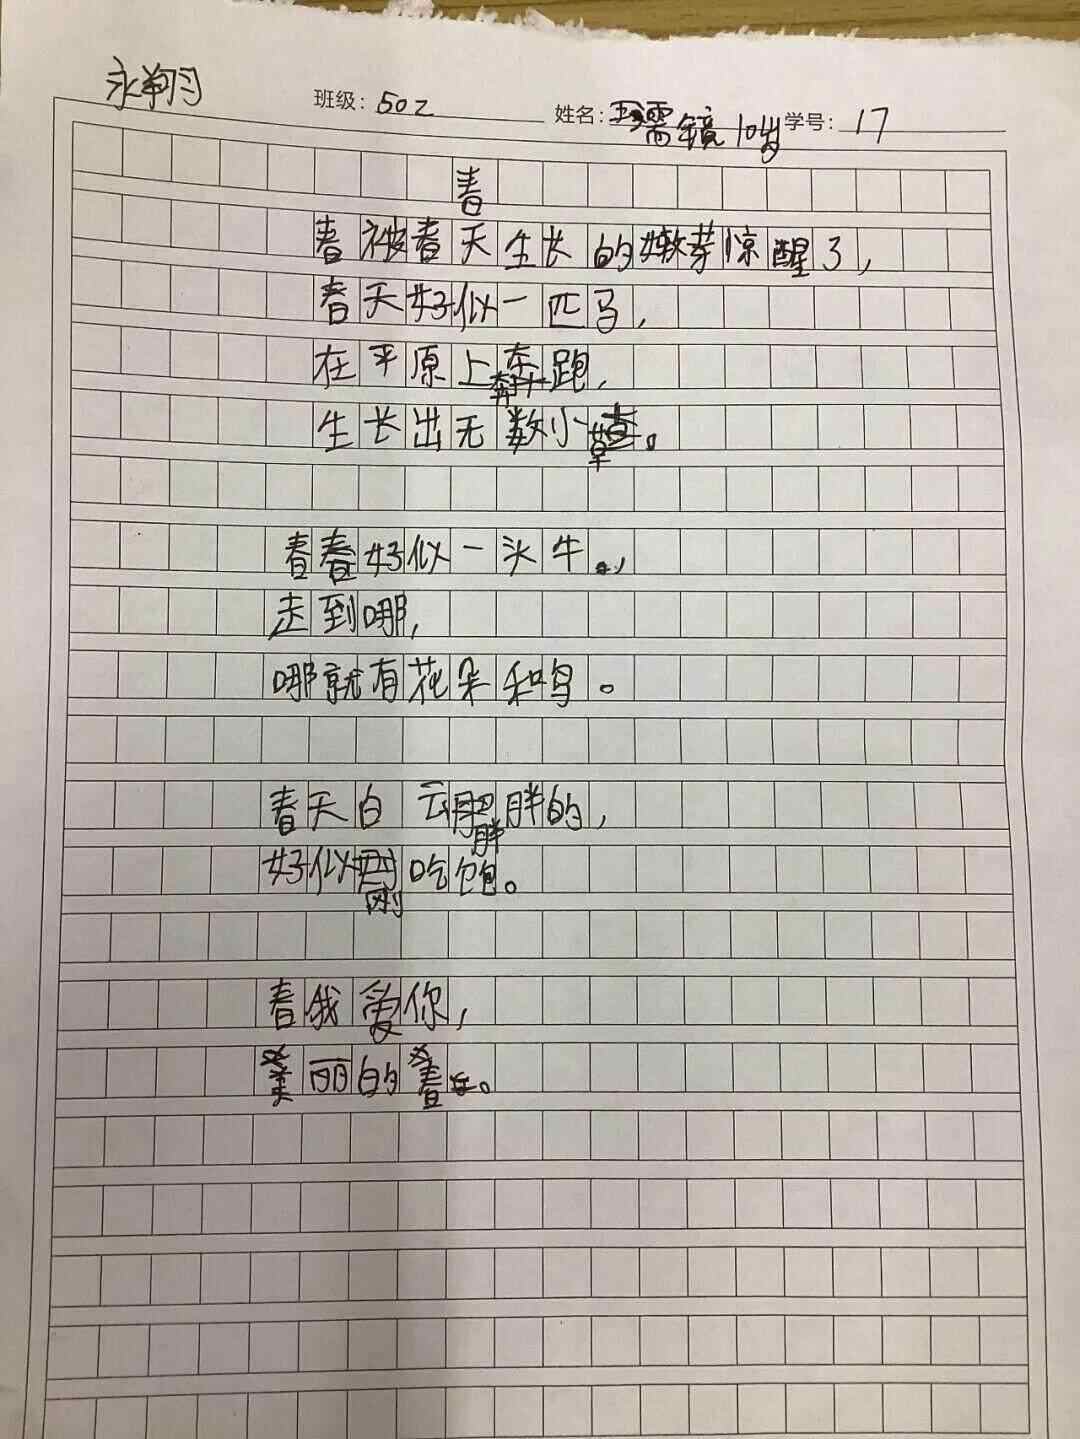 永翔
班级：502 姓名：雷镜 10岁 学号：17
春
春被春天生长的嫩芽惊醒了，
春天好似一匹马，
在平原上奔跑，
生长出无数小草。
春春好似一头牛，
走到哪，
哪就有花朵和鸟。
春天白云胖胖的，
好似刚吃饱。
春我爱你，
美丽的春。